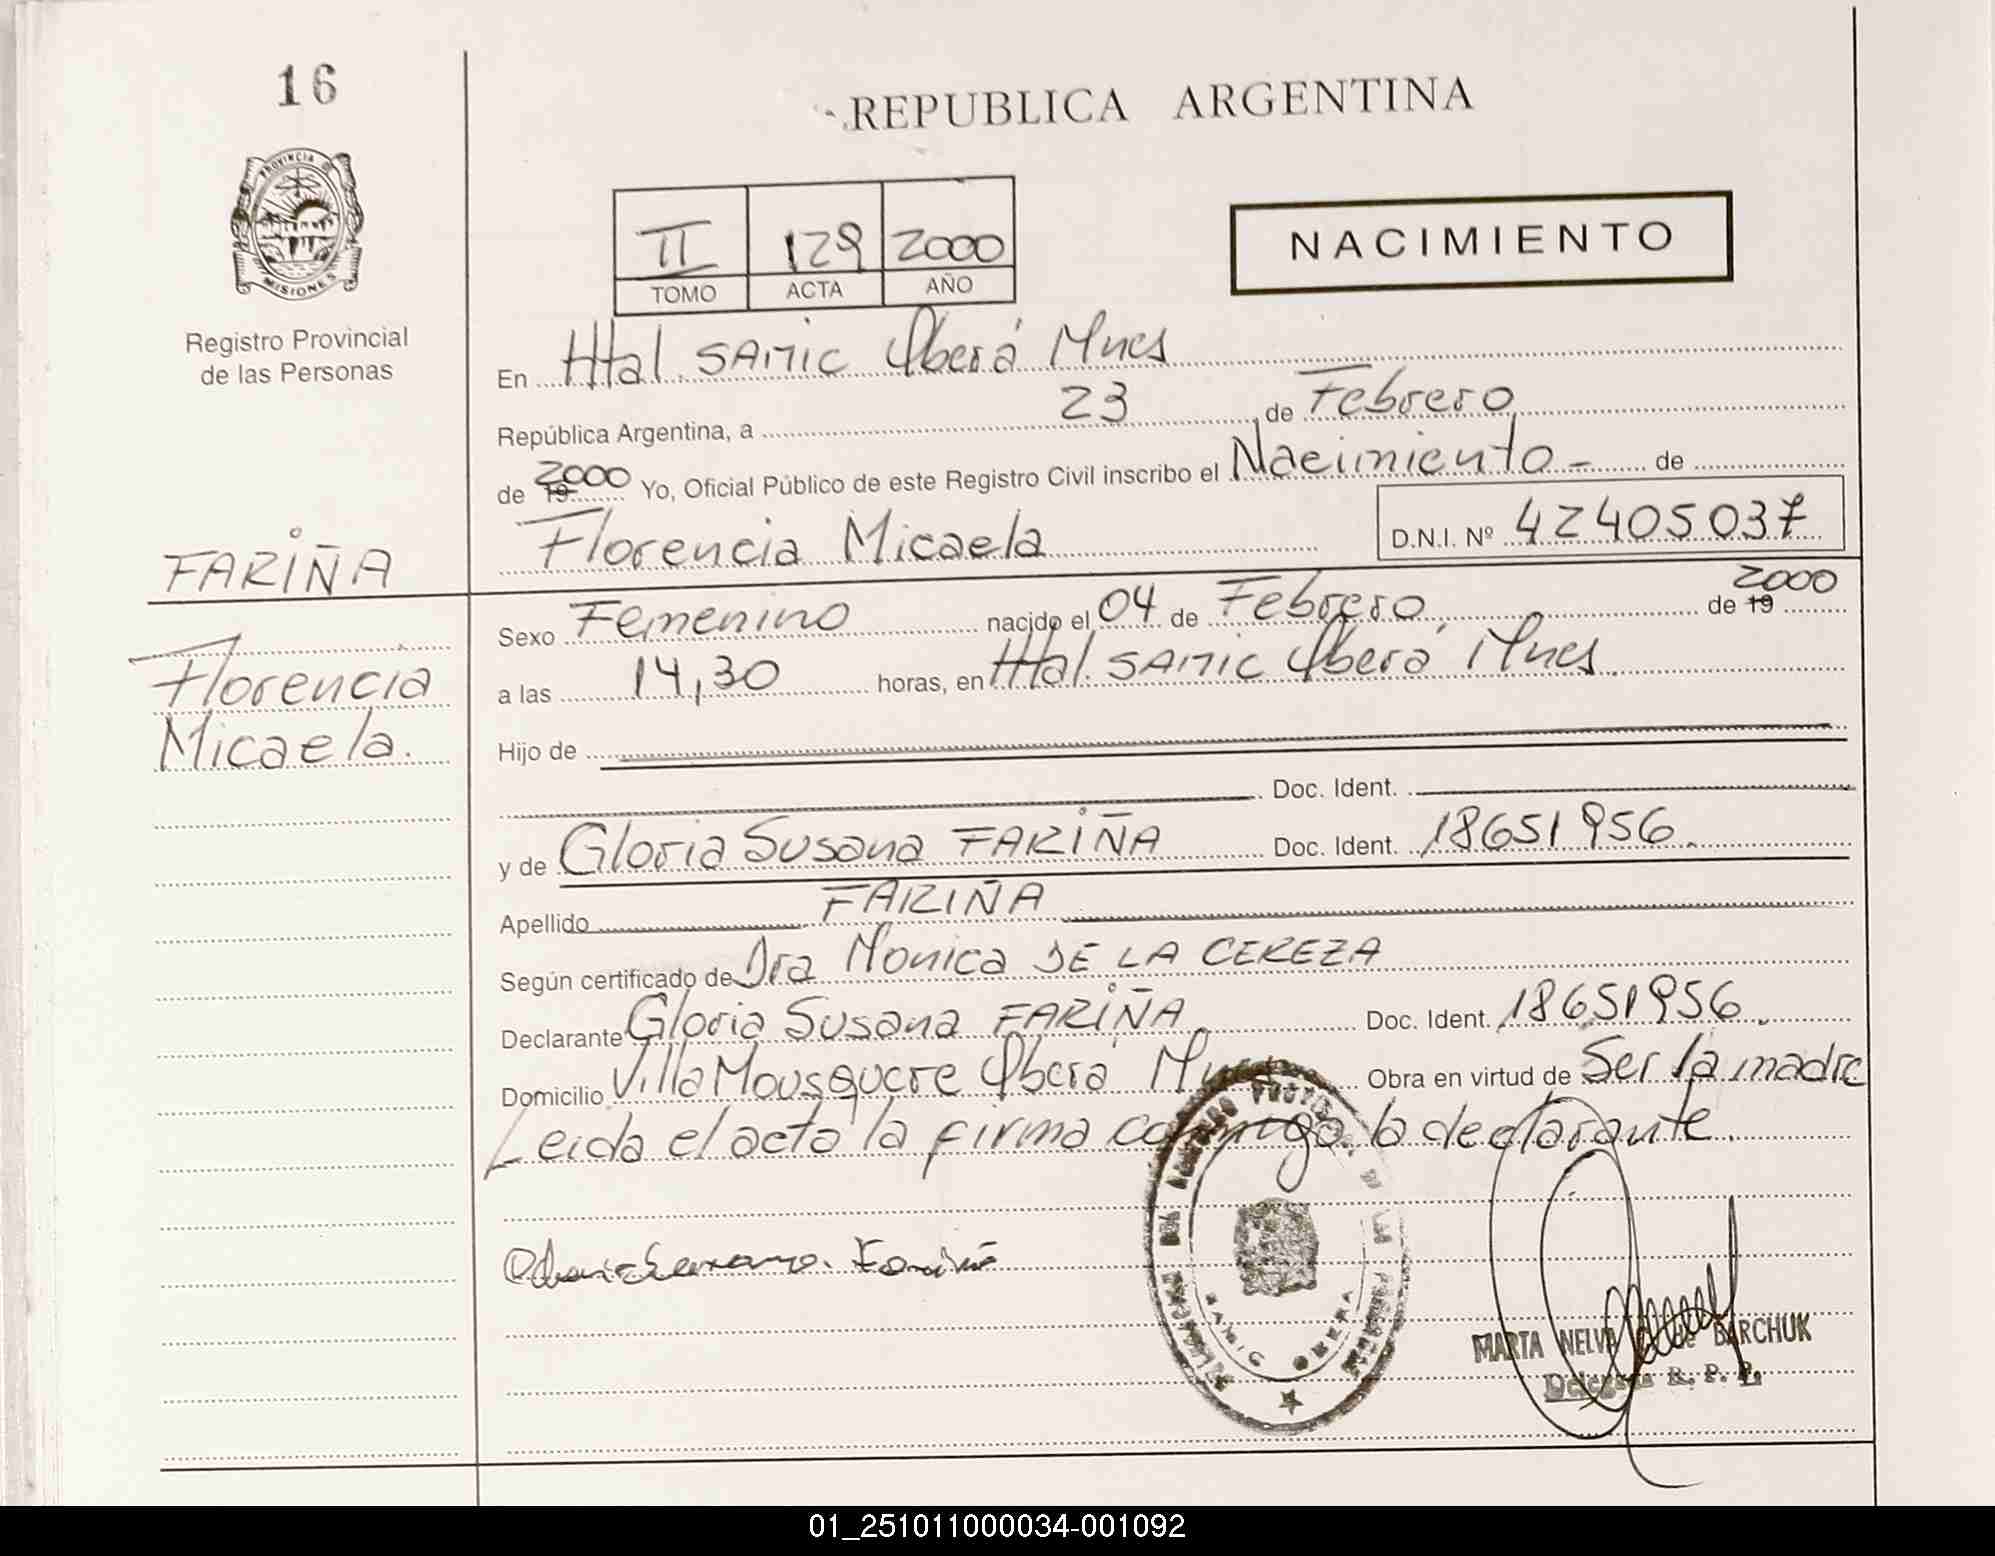 16
PROVINCIA D
MISIONES
Registro Provincial
de las Personas
REPUBLICA ARGENTINA
II 129 2000
TOMO ACTA AÑO
NACIMIENTO
En Htal. SAMIC Oberá Mnes
República Argentina, a 23 de Febrero
de 19 2000 Yo, Oficial Público de este Registro Civil inscribo el Nacimiento - de
Florencia Micaela D.N.I. Nº 42405037
FARIÑA
Florencia
Micaela.
Sexo Femenino nacido el 04 de Febrero, de 19 2000
a las 14,30 horas, en Htal. SAMIC Oberá Mnes.
Hijo de
Doc. Ident.
y de Gloria Susana FARIÑA Doc. Ident. 18651956.
Apellido FARIÑA
Según certificado de Dra Monica DE LA CEREZA
Declarante Gloria Susana FARIÑA. Doc. Ident. 18651956.
Domicilio Villa Mousquere Oberá Obra en virtud de Ser la madre
Leida el acta la firma conmigo la declarante.
SAMIC OBERA
MARTA NELVA de BARCHUK
Delegada R. P. P.
01_251011000034-001092